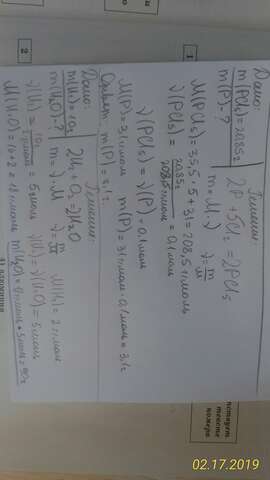 1
Дано:
m(PCl₅)=20,85г
m(P)-?
Решение:
2P + 5Cl₂ = 2PCl₅
m=M·ν ν=m/M
M(PCl₅)=35,5·5+31=208,5 г/моль
ν(PCl₅)=20,85г/208,5 г/моль=0,1 моль
ν(PCl₅)=ν(P)=0,1 моль
M(P)=31 г/моль m(P)=31 г/моль·0,1 моль=3,1г
Ответ: m(P)=3,1г.
2
Дано:
m(H₂)=10г
m(H₂O)-?
Решение:
2H₂+O₂=2H₂O
m=ν·M ν=m/M M(H₂)=2 г/моль
ν(H₂)=10г/2г/моль=5моль ν(H₂)=ν(H₂O)=5моль
M(H₂O)=16+2=18 г/моль m(H₂O)=18 г/моль·5моль=90г
02.17.2019